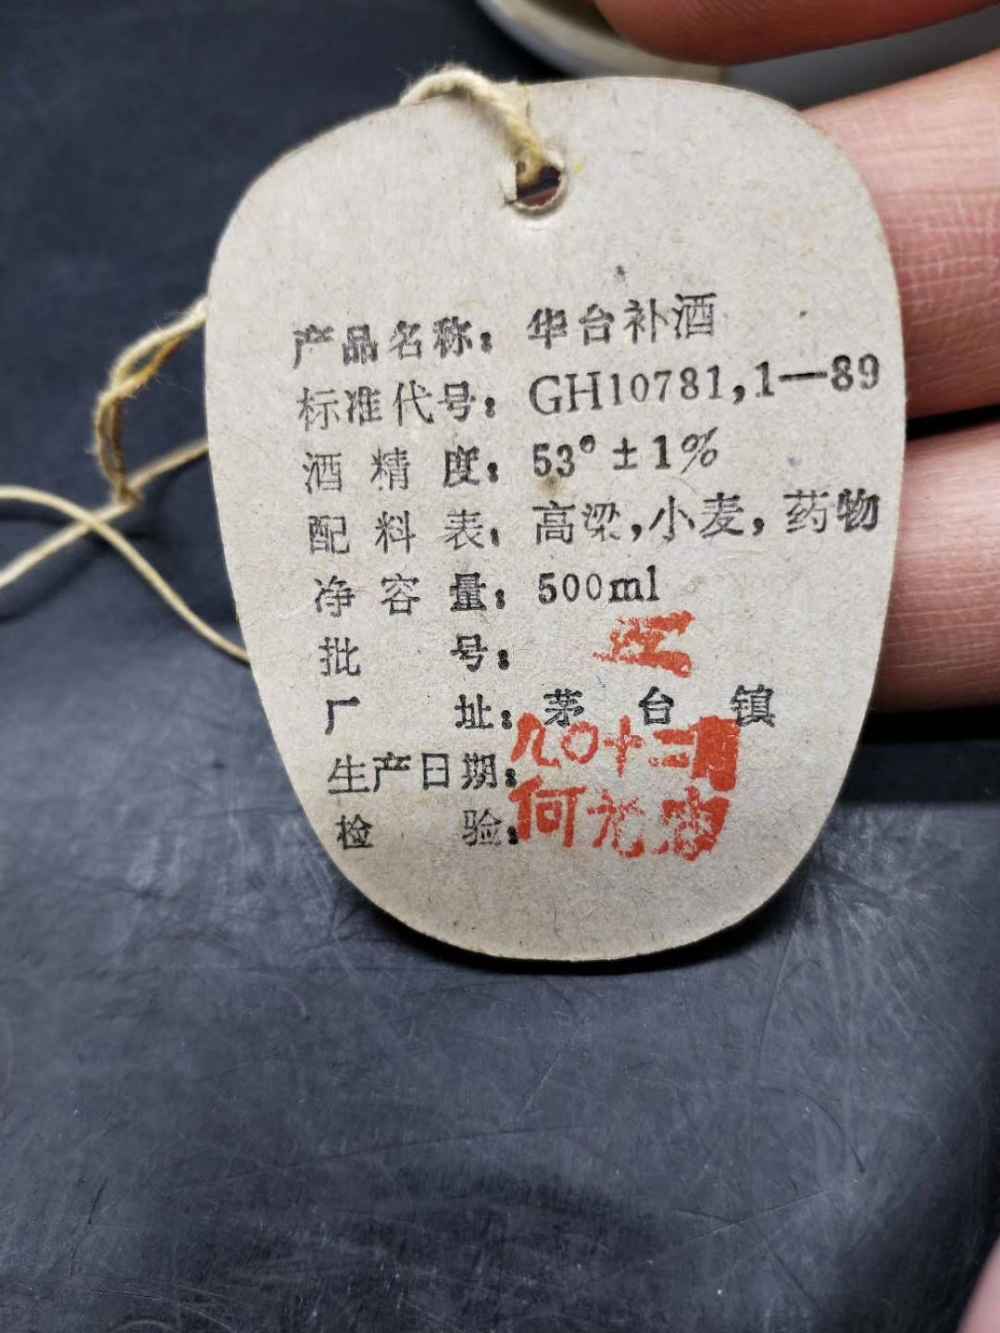 产品名称：华台补酒
标准代号：GH10781,1—89
酒精度：53°±1%
配料表：高粱,小麦,药物
净容量：500ml
批号：
厂址：茅台镇
生产日期：九〇十二月
检验：何元忠